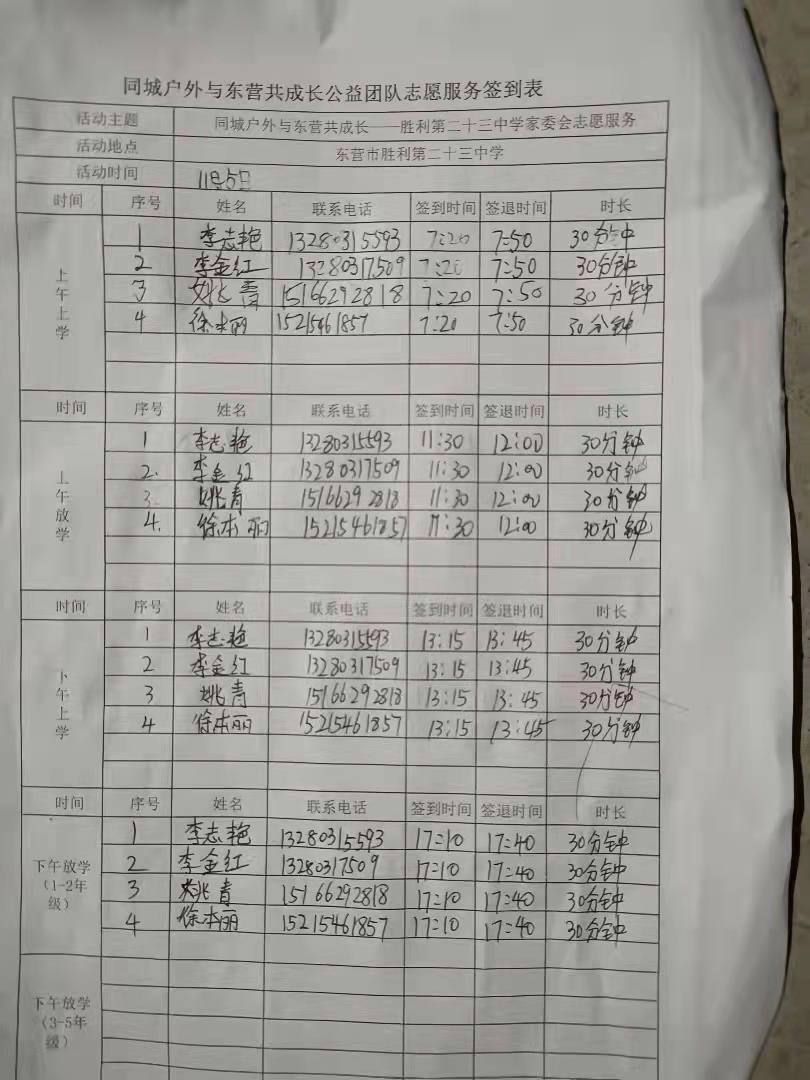 同城户外与东营共成长公益团队志愿服务签到表
活动主题 同城户外与东营共成长——胜利第二十三中学家委会志愿服务
活动地点 东营市胜利第二十三中学
活动时间 11月5日
时间 序号 姓名 联系电话 签到时间 签退时间 时长
上午上学
1 李志艳 13280315593 7:20 7:50 30分钟
2 李金红 13280317509 7:20 7:50 30分钟
3 姚青 15166292818 7:20 7:50 30分钟
4 徐本丽 15215461857 7:20 7:50 30分钟
时间 序号 姓名 联系电话 签到时间 签退时间 时长
上午放学
1 李志艳 13280315593 11:30 12:00 30分钟
2. 李金红 13280317509 11:30 12:00 30分钟
3. 姚青 15166292818 11:30 12:00 30分钟
4. 徐本丽 15215461857 11:30 12:00 30分钟
时间 序号 姓名 联系电话 签到时间 签退时间 时长
下午上学
1 李志艳 13280315593 13:15 13:45 30分钟
2 李金红 13280317509 13:15 13:45 30分钟
3 姚青 15166292818 13:15 13:45 30分钟
4 徐本丽 15215461857 13:15 13:45 30分钟
时间 序号 姓名 联系电话 签到时间 签退时间 时长
下午放学
(1-2年
级)
1 李志艳 13280315593 17:10 17:40 30分钟
2 李金红 13280317509 17:10 17:40 30分钟
3 姚青 15166292818 17:10 17:40 30分钟
4 徐本丽 15215461857 17:10 17:40 30分钟
下午放学
(3-5年
级)